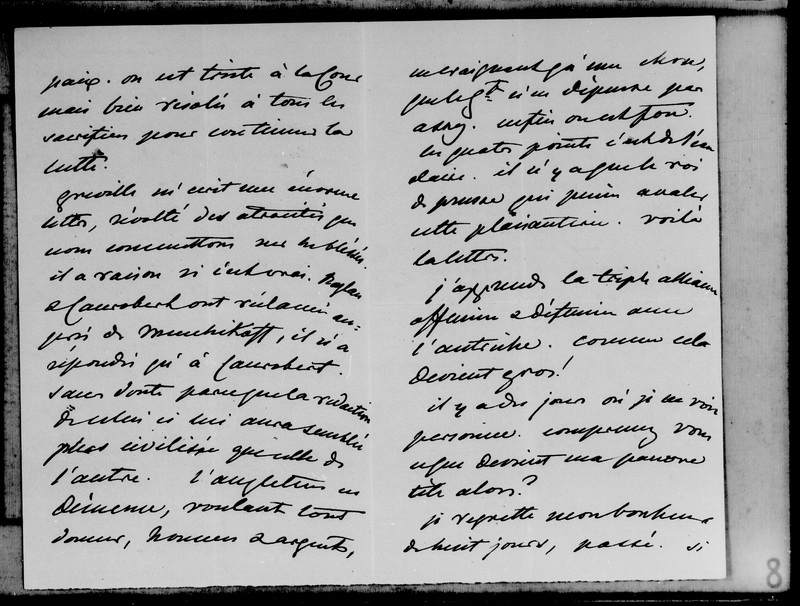 paix. on est triste à la Cour
mais bien résolu à tous les
sacrifices pour continuer la
lutte.
Greville m'écrit une énorme
lettre, révolté des atrocités que
nous commettons sur les blessés.
il a raison si c'est vrai. Raglan
& Canrobert ont réclamé au-
près de Menchikoff, il n'a
répondu qu'à Canrobert.
Sans doute parceque la rédaction
de celui ci lui aura semblé
plus civilisée que celle de
l'autre. l'angleterre en
démence, voulant tout
donner, hommes & argents,
ne craignant qu'une chose,
que le gt n'en dépense pas
assez. enfin on est fou.
les quatre points c'est
claire. il n'y a que le roi
de prusse qui puisse avaler
cette plaisanterie. voilà
la lettre.
j'apprends la triple alliance
offensive & défensive avec
l'autriche. comme cela
devient gros!
il y a des jours où je ne vois
personne. comprenez vous
ce que devient ma pauvre
tête alors?
je regrette mon bonheur
de huit jours, passé. si
8